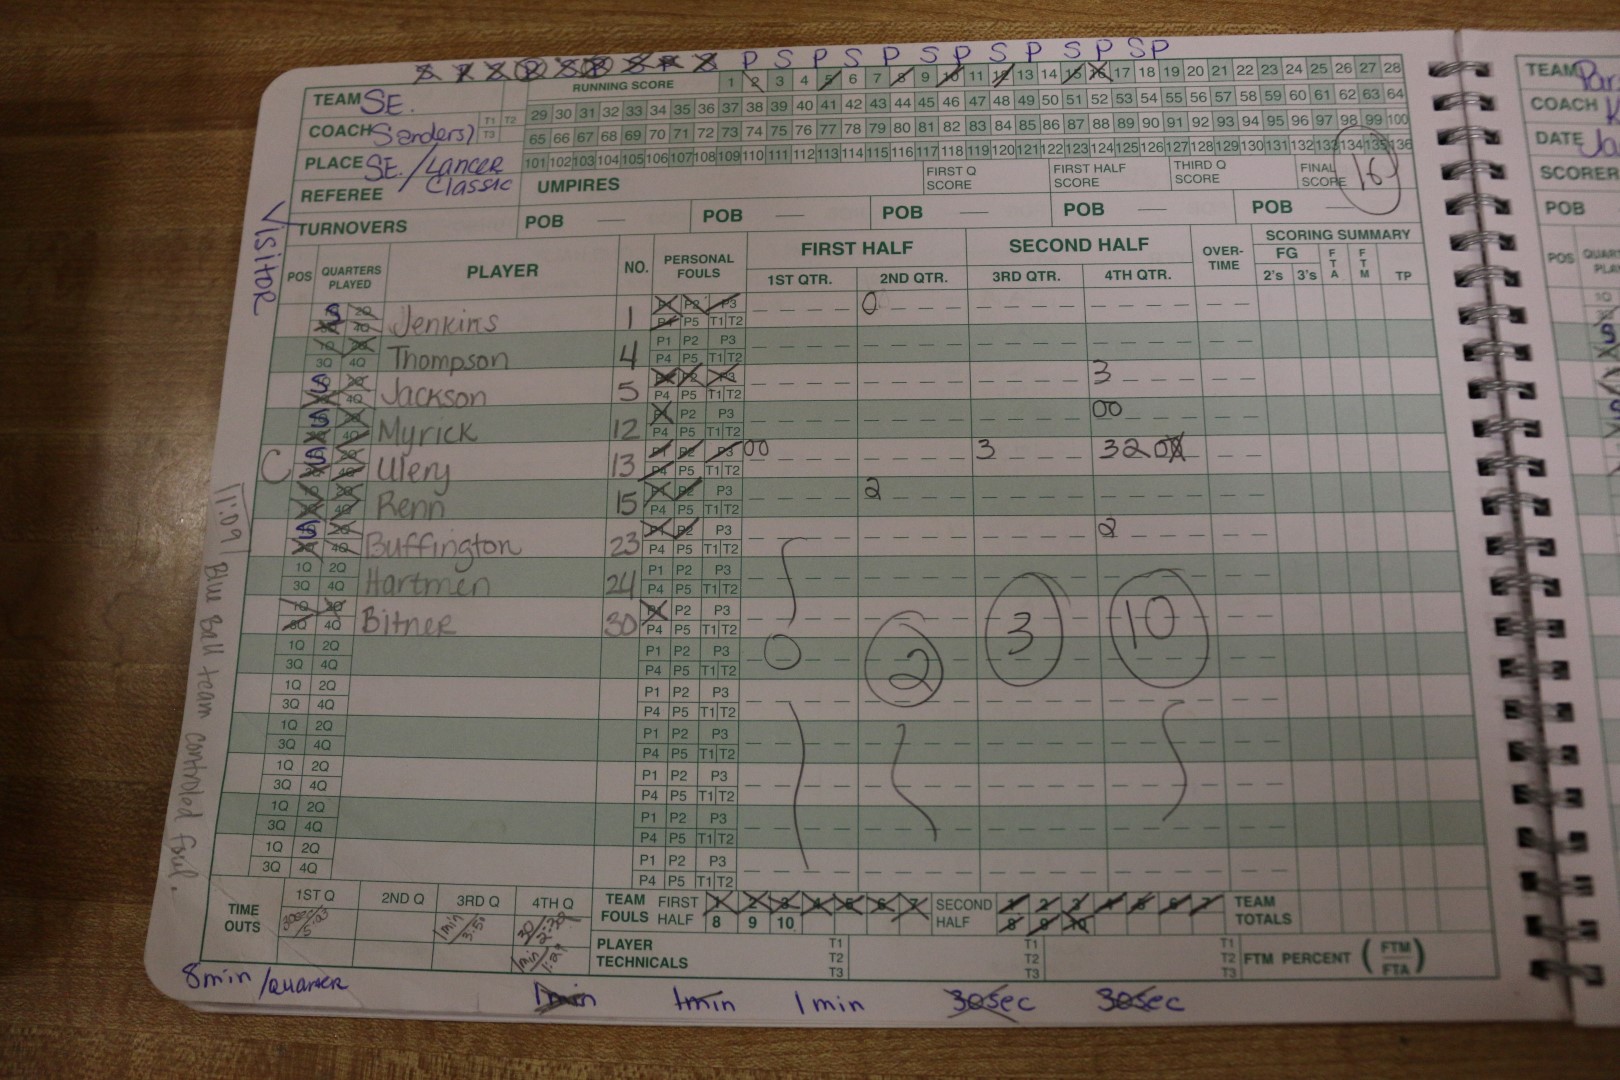 P S P S P S P S P S P S P
TEAM SE. RUNNING SCORE 1 2 3 4 5 6 7 8 9 10 11 12 13 14 15 16 17 18 19 20 21 22 23 24 25 26 27 28
29 30 31 32 33 34 35 36 37 38 39 40 41 42 43 44 45 46 47 48 49 50 51 52 53 54 55 56 57 58 59 60 61 62 63 64
COACH Sanders) T1 T2 T3 65 66 67 68 69 70 71 72 73 74 75 76 77 78 79 80 81 82 83 84 85 86 87 88 89 90 91 92 93 94 95 96 97 98 99 100
PLACE SE. / Lancer Classic 101 102 103 104 105 106 107 108 109 110 111 112 113 114 115 116 117 118 119 120 121 122 123 124 125 126 127 128 129 130 131 132 133 134 135 136
REFEREE UMPIRES FIRST Q SCORE FIRST HALF SCORE THIRD Q SCORE FINAL SCORE 16
TURNOVERS POB POB POB POB POB
VISITOR
POS QUARTERS PLAYED PLAYER NO. PERSONAL FOULS FIRST HALF SECOND HALF OVER-TIME SCORING SUMMARY
1ST QTR. 2ND QTR. 3RD QTR. 4TH QTR. FG 2's 3's FTA FTM TP
S 2Q 3Q 4Q Jenkins 1 P1 P2 P3 P4 P5 T1 T2 0
1Q 2Q 3Q 4Q Thompson 4 P1 P2 P3 P4 P5 T1 T2
S 2Q 3Q 4Q Jackson 5 P1 P2 P3 P4 P5 T1 T2 3
S 2Q 3Q 4Q Myrick 12 P1 P2 P3 P4 P5 T1 T2 00
C S 2Q 3Q 4Q Ulery 13 P1 P2 P3 P4 P5 T1 T2 00 3 320
1Q 2Q 3Q 4Q Renn 15 P1 P2 P3 P4 P5 T1 T2 2
S 2Q 3Q 4Q Buffington 23 P1 P2 P3 P4 P5 T1 T2 2
1Q 2Q 3Q 4Q Hartmen 24 P1 P2 P3 P4 P5 T1 T2
1Q 2Q 3Q 4Q Bitner 30 P1 P2 P3 P4 P5 T1 T2
0 2 3 10
1Q 2Q 3Q 4Q P1 P2 P3 P4 P5 T1 T2
1Q 2Q 3Q 4Q P1 P2 P3 P4 P5 T1 T2
1Q 2Q 3Q 4Q P1 P2 P3 P4 P5 T1 T2
1Q 2Q 3Q 4Q P1 P2 P3 P4 P5 T1 T2
1Q 2Q 3Q 4Q P1 P2 P3 P4 P5 T1 T2
1Q 2Q 3Q 4Q P1 P2 P3 P4 P5 T1 T2
1:09 Blue Ball team controled foul.
TIME OUTS 1ST Q 2ND Q 3RD Q 4TH Q
1min 3:51
1min 1:29
TEAM FOULS FIRST HALF 1 2 3 4 5 6 7 8 9 10 SECOND HALF 1 2 3 4 5 6 7 8 9 10 TEAM TOTALS
PLAYER TECHNICALS T1 T2 T3 T1 T2 T3 T1 T2 T3 FTM PERCENT ( FTM / FTA )
8min /quarter 1min 1min 1min 30sec 30sec
TEAM Par
COACH K
DATE Ja
SCORER
POB
POS